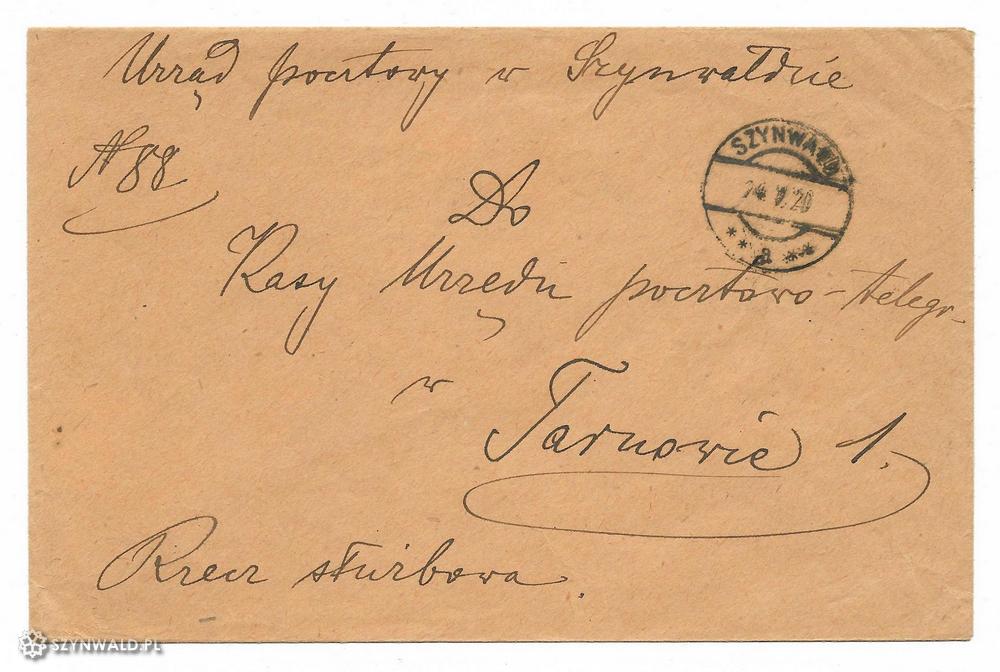 Urząd pocztowy w Szynwałdzie
N 88
SZYNWAŁD
24 V. 20
** a **
Do
Kasy Urzędu pocztowo-telegr-
w
Tarnowie 1.
Rzecz służbowa.
SZYNWALD.PL